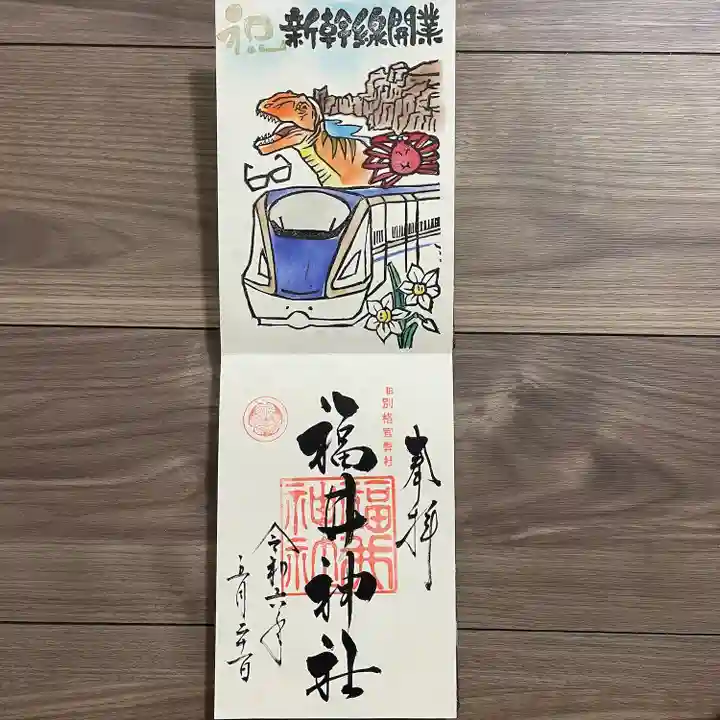 祝 新幹線開業
奉拝
旧別格官幣社
福井神社
福井神社
令和六年
五月二十一日